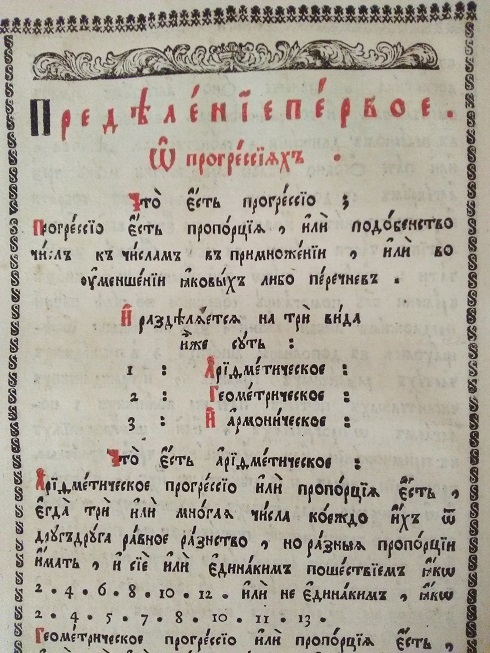 Предѣле́нїе пе́рвое.
Ѿ прогре́ссїѧхъ .
Что̀ є҆́сть прогре́ссїо ;
Прогре́ссїо є҆́сть пропо́рцїѧ , и҆лѝ подо́бенство
чи́слъ къ чи́сламъ въ примноже́нїи , и҆лѝ во
ѹ҆меньше́нїи ꙗ҆ковы́хъ либо пе́речневъ .
И҆ раздѣлѧ́етсѧ на трѝ ви́да
и҆̀же сꙋ́ть :
1 : А҆рїѳме́тическое :
2 : Геоме́трическое :
3 : И҆ армони́ческое :
Что̀ є҆́сть а҆рїѳме́тическое :
А҆рїѳме́тическое прогре́ссїо и҆лѝ пропо́рцїѧ є҆́сть ,
є҆гда̀ трѝ и҆лѝ мнѡ́гаѧ чи́сла коеждо и҆́хъ ѿ
дрꙋ́гъдрꙋга ра́вное ра́знство , но ра́зныѧ пропо́рцїи
и҆́мать , и҆ сїѐ и҆лѝ є҆дина́кимъ поше́ствїемъ ꙗ҆́кѡ
2 . 4 . 6 . 8 . 10 . 12 . и҆лѝ не є҆дина́кимъ , ꙗ҆́кѡ
2 . 4 . 5 . 7 . 8 . 10 . 11 . 13 .
Геоме́трическое прогре́ссїо и҆лѝ пропо́рцїѧ є҆́сть ,